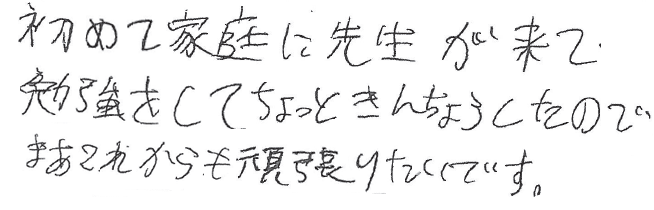 初めて家庭に先生が来て
勉強をしてちょっときんちょうしたので
まあこれからも頑張りたいです。